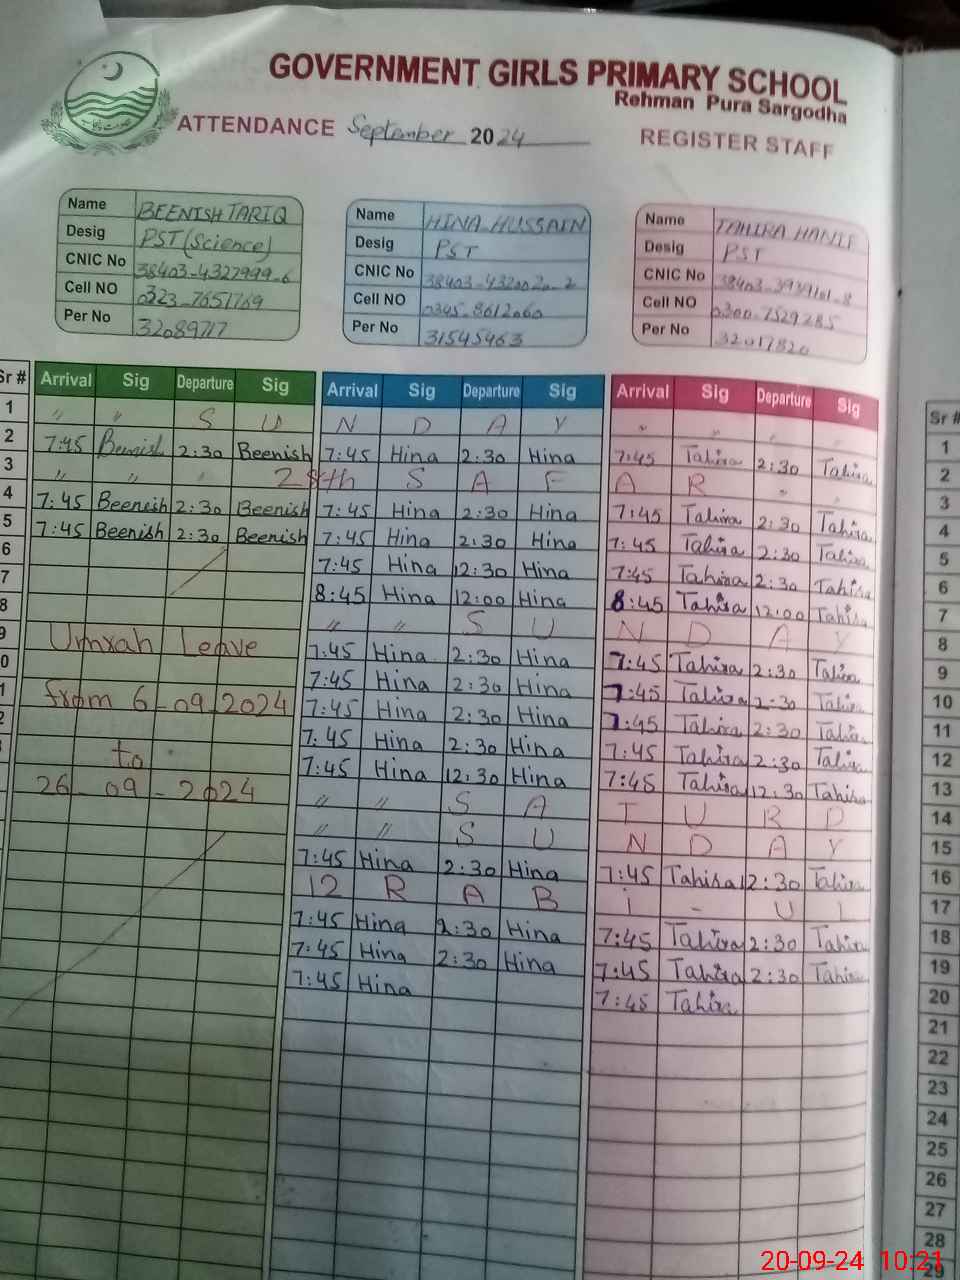 GOVERNMENT GIRLS PRIMARY SCHOOL
Rehman Pura Sargodha
ATTENDANCE September 2024 REGISTER STAFF
Name BEENISH TARIQ
Desig PST (Science)
CNIC No 38403-4327999-6
Cell NO 0323-7651769
Per No 32089717
Name HINA HUSSAIN
Desig PST
CNIC No
Cell NO 0345-8612060
Per No 31545463
Name TAHIRA HANIF
Desig PST
CNIC No
Cell NO 0300-7529285
Per No 32017820
Sr # Arrival Sig Departure Sig Arrival Sig Departure Sig Arrival Sig Departure Sig Sr #
1 " " S U N D A Y " " " "
2 7:45 Beenish 2:30 Beenish 7:45 Hina 2:30 Hina 7:45 Tahira 2:30 Tahira
3 " " " 28th S A F A R " "
4 7:45 Beenish 2:30 Beenish 7:45 Hina 2:30 Hina 7:45 Tahira 2:30 Tahira
5 7:45 Beenish 2:30 Beenish 7:45 Hina 2:30 Hina 7:45 Tahira 2:30 Tahira
6 7:45 Hina 12:30 Hina 7:45 Tahira 2:30 Tahira
7 8:45 Hina 12:00 Hina 8:45 Tahira 12:00 Tahira
8 " " S U N D A Y
9 Umrah Leave 7:45 Hina 2:30 Hina 7:45 Tahira 2:30 Tahira
0 7:45 Hina 2:30 Hina 7:45 Tahira 2:30 Tahira
1 from 6-09-2024 7:45 Hina 2:30 Hina 7:45 Tahira 2:30 Tahira
2 7:45 Hina 2:30 Hina 7:45 Tahira 2:30 Tahira
to 7:45 Hina 12:30 Hina 7:45 Tahira 12:30 Tahira
26-09-2024 " " S A T U R D
" " S U N D A Y
7:45 Hina 2:30 Hina 7:45 Tahira 2:30 Tahira
12 R A B i - U L
7:45 Hina 2:30 Hina 7:45 Tahira 2:30 Tahira
7:45 Hina 2:30 Hina 7:45 Tahira 2:30 Tahira
7:45 Hina 7:45 Tahira
1
2
3
4
5
6
7
8
9
10
11
12
13
14
15
16
17
18
19
20
21
22
23
24
25
26
27
28
29
20-09-24 10:21